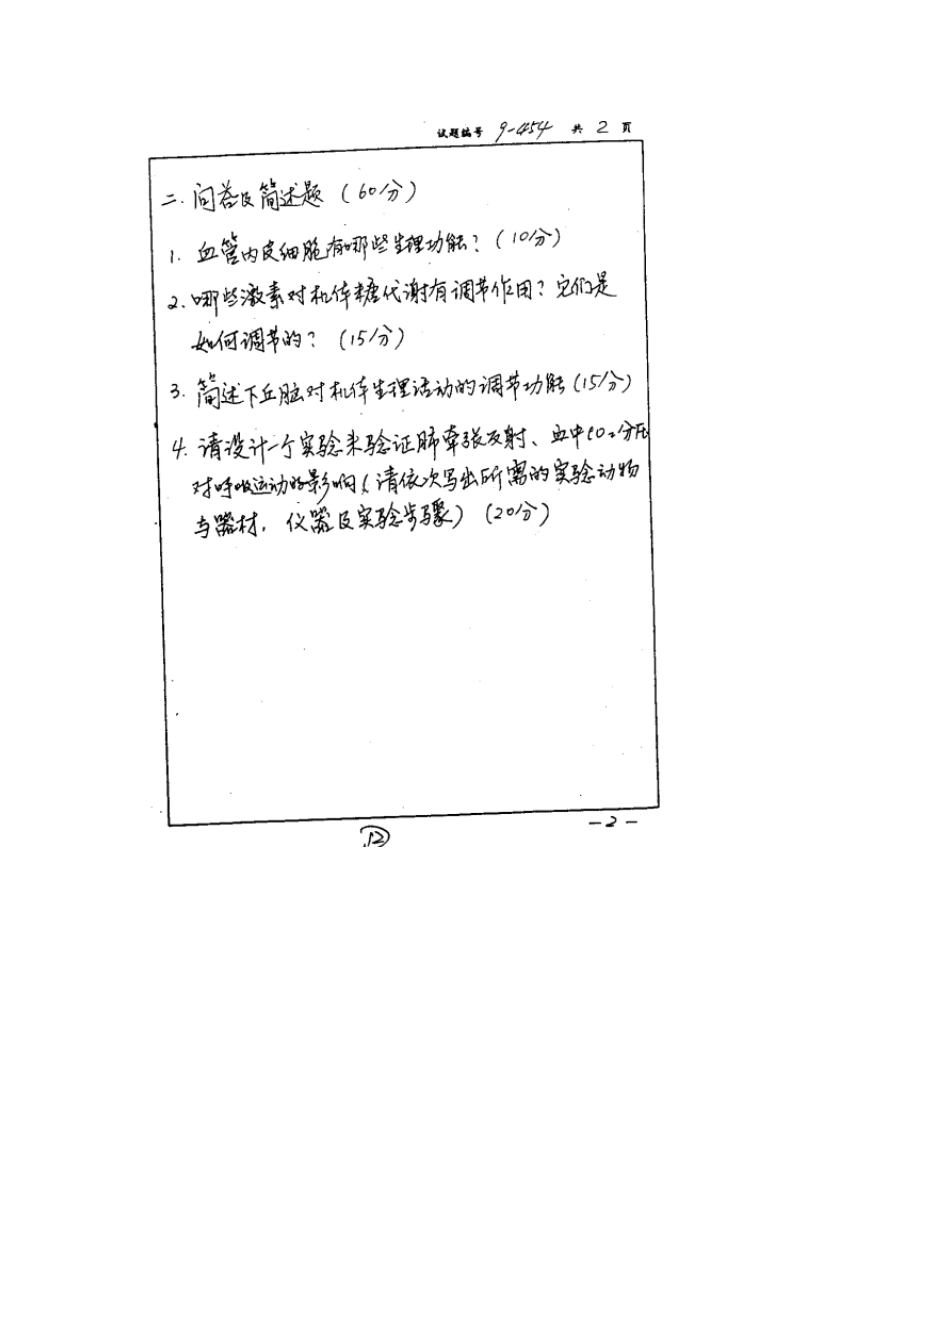 试题编号 9-454 共 2 页
二. 问答及简述题 (60分)
1. 血管内皮细胞有哪些生理功能? (10分)
2. 哪些激素对机体糖代谢有调节作用? 它们是
如何调节的? (15分)
3. 简述下丘脑对机体生理活动的调节功能 (15分)
4. 请设计一个实验来验证肺牵张反射、血中CO₂分压
对呼吸运动的影响 (请依次写出所需的实验动物
与器材, 仪器及实验步骤) (20分)
-2-
⑫